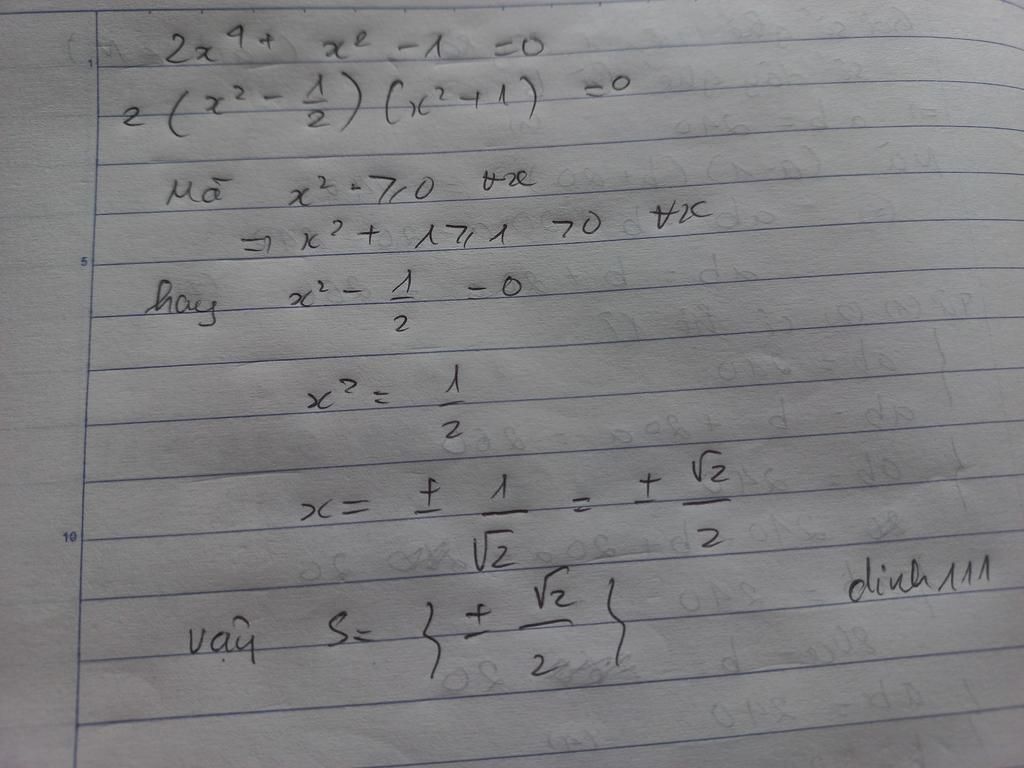 2x⁴ + x² - 1 = 0
2 (x² - 1/2) (x² + 1) = 0
Mà x² ⩾ 0 ∀x
=> x² + 1 ⩾ 1 > 0 ∀x
hay x² - 1/2 = 0
x² = 1/2
x = ± 1/√2 = ± √2/2
Vậy S = {± √2/2}
dinh111
1
5
10